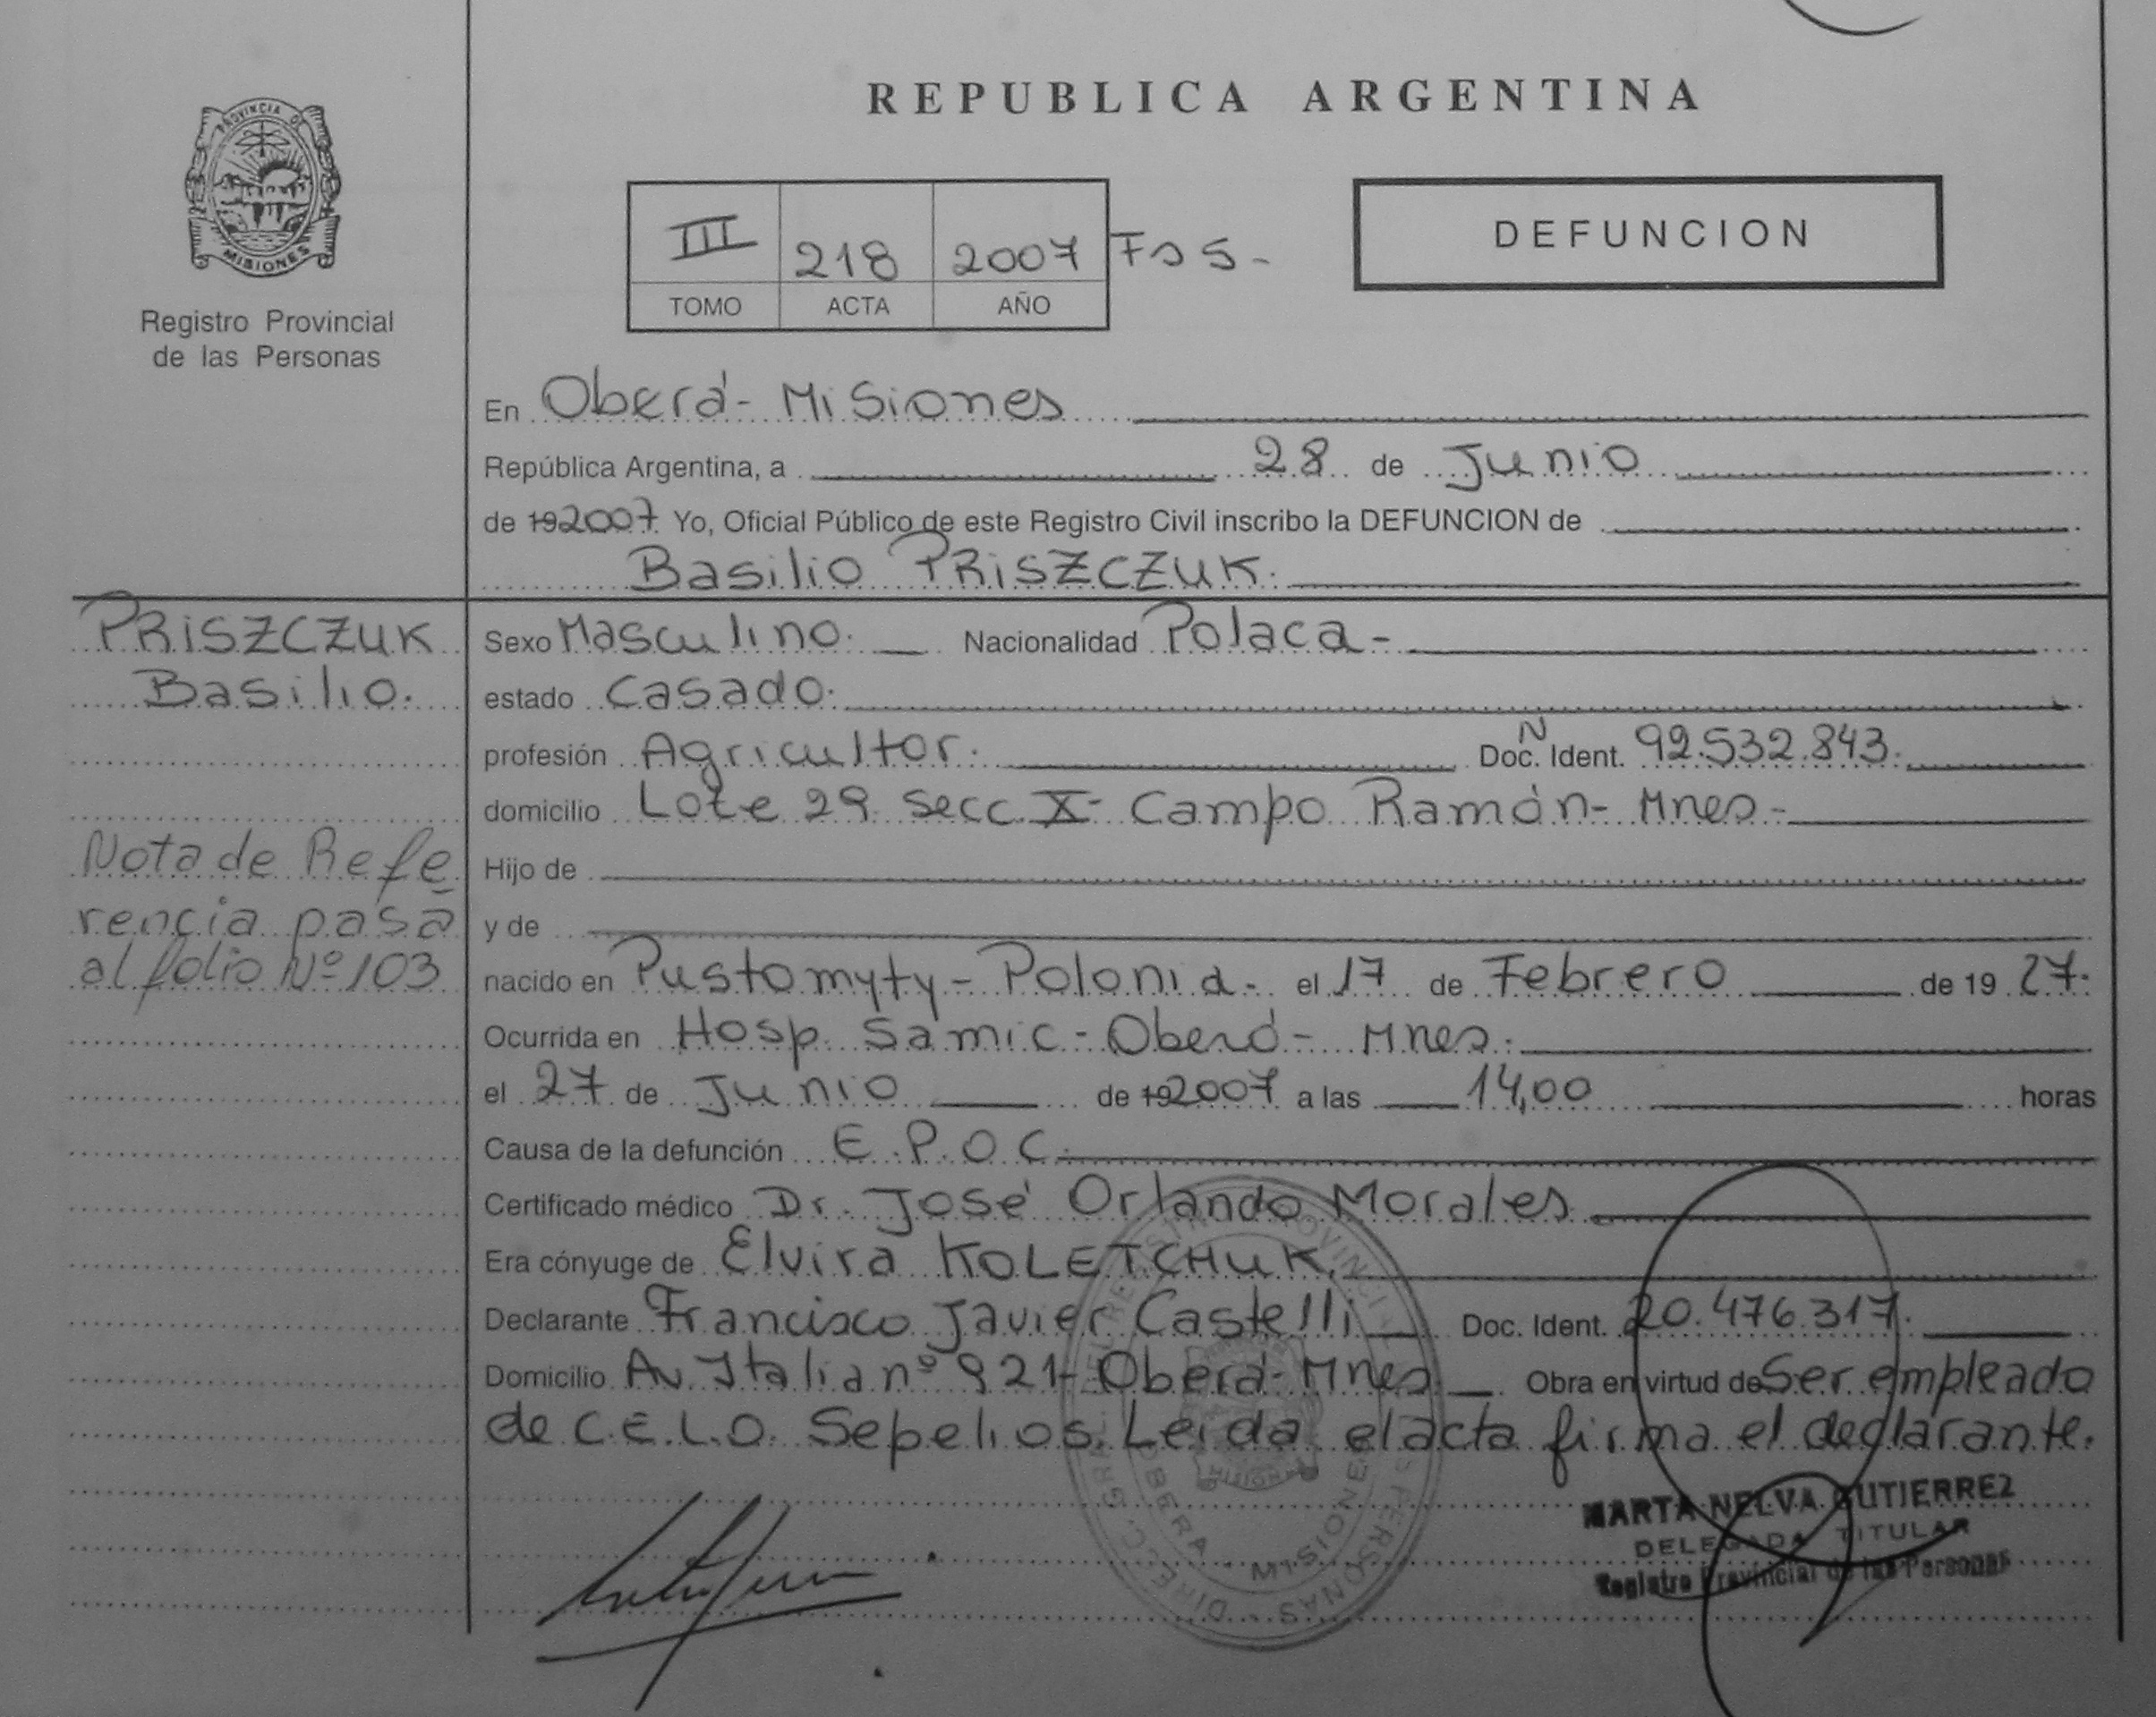 REPUBLICA ARGENTINA
PROVINCIA DE
MISIONES
Registro Provincial
de las Personas
III 218 2007 Fº 5-
TOMO ACTA AÑO
DEFUNCION
En Oberá- Misiones
República Argentina, a 28 de Junio
de 192007. Yo, Oficial Público de este Registro Civil inscribo la DEFUNCION de
Basilio PRISZCZUK.
PRISZCZUK
Basilio.
Nota de Refe
rencia pasa
al folio Nº 103
Sexo Masculino. Nacionalidad Polaca-
estado Casado.
profesión Agricultor. Doc. N Ident. 92.532.843.
domicilio Lote 29 Secc. X- Campo Ramón- Mnes-
Hijo de
y de
nacido en Pustomyty- Polonia. el 17 de Febrero de 19 27.
Ocurrida en Hosp. Samic- Oberá- Mnes.
el 27 de Junio de 192007 a las 14,00 horas
Causa de la defunción E.P.O.C.
Certificado médico Dr. José Orlando Morales
Era cónyuge de Elvira KOLETCHUK.
Declarante Francisco Javier Castelli Doc. Ident. 20.476.317.
Domicilio Av. Italia nº 921- Oberá- Mnes Obra en virtud de Ser empleado
de C.E.L.O. Sepelios. Leida el acta firma el declarante.
OBERA - MISIONES
MARTA NELVA GUTIERREZ
DELEGADA TITULAR
Registro Provincial de las Personas